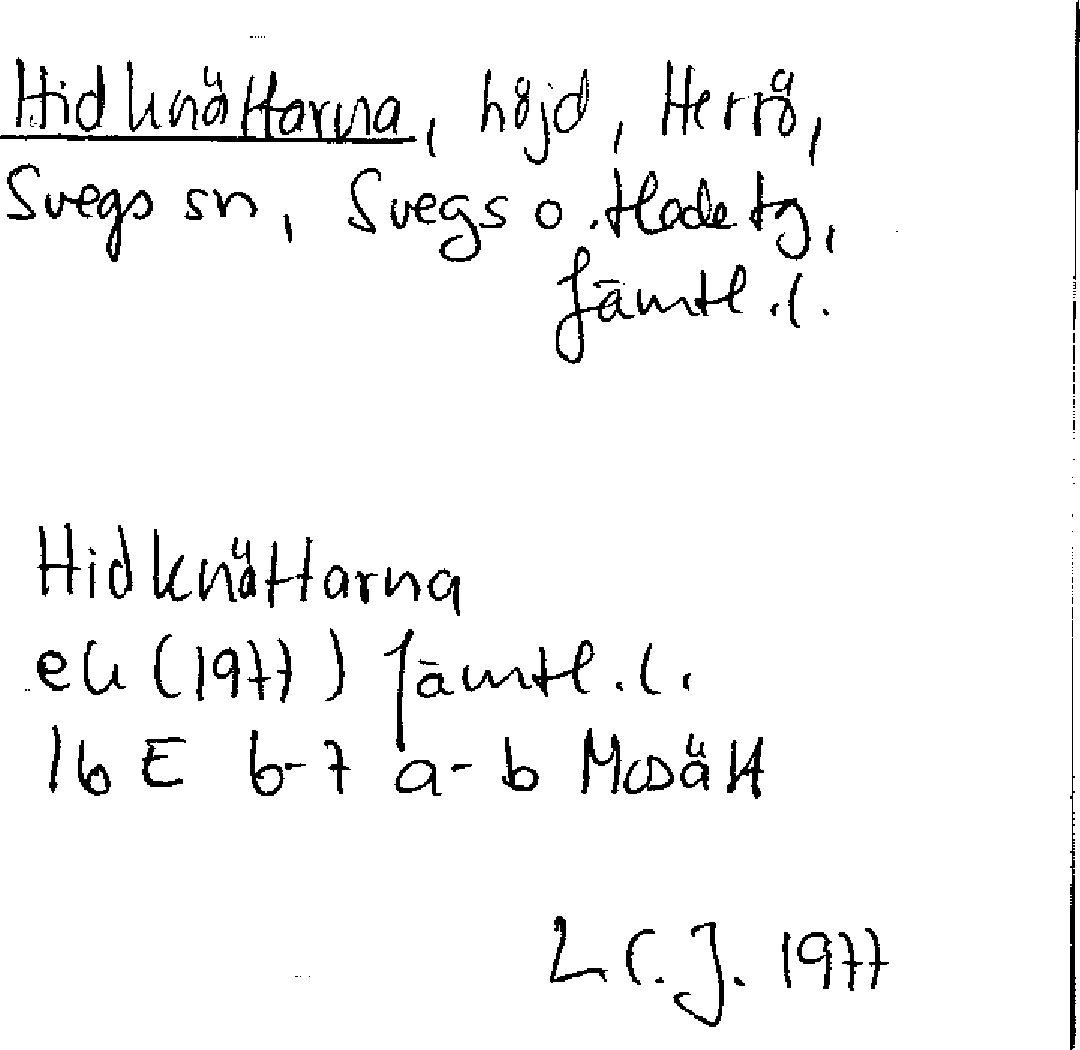 Hidknättarna, höjd, Herrö,
Svegs sn, Svegs o. Hede tg,
Jämtl. l.
Hidknättarna
ek (1977) Jämtl. l.
16 E 6-7 a-b Mosätt
L C. J. 1977